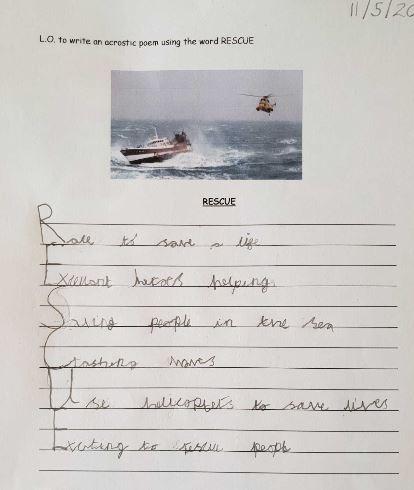 11/5/20
L.O. to write an acrostic poem using the word RESCUE
RESCUE
Race to save a life
Exellant heroes helping
Saving people in the sea
Crashing waves
Use helicopters to save lives
Exciting to rescue people